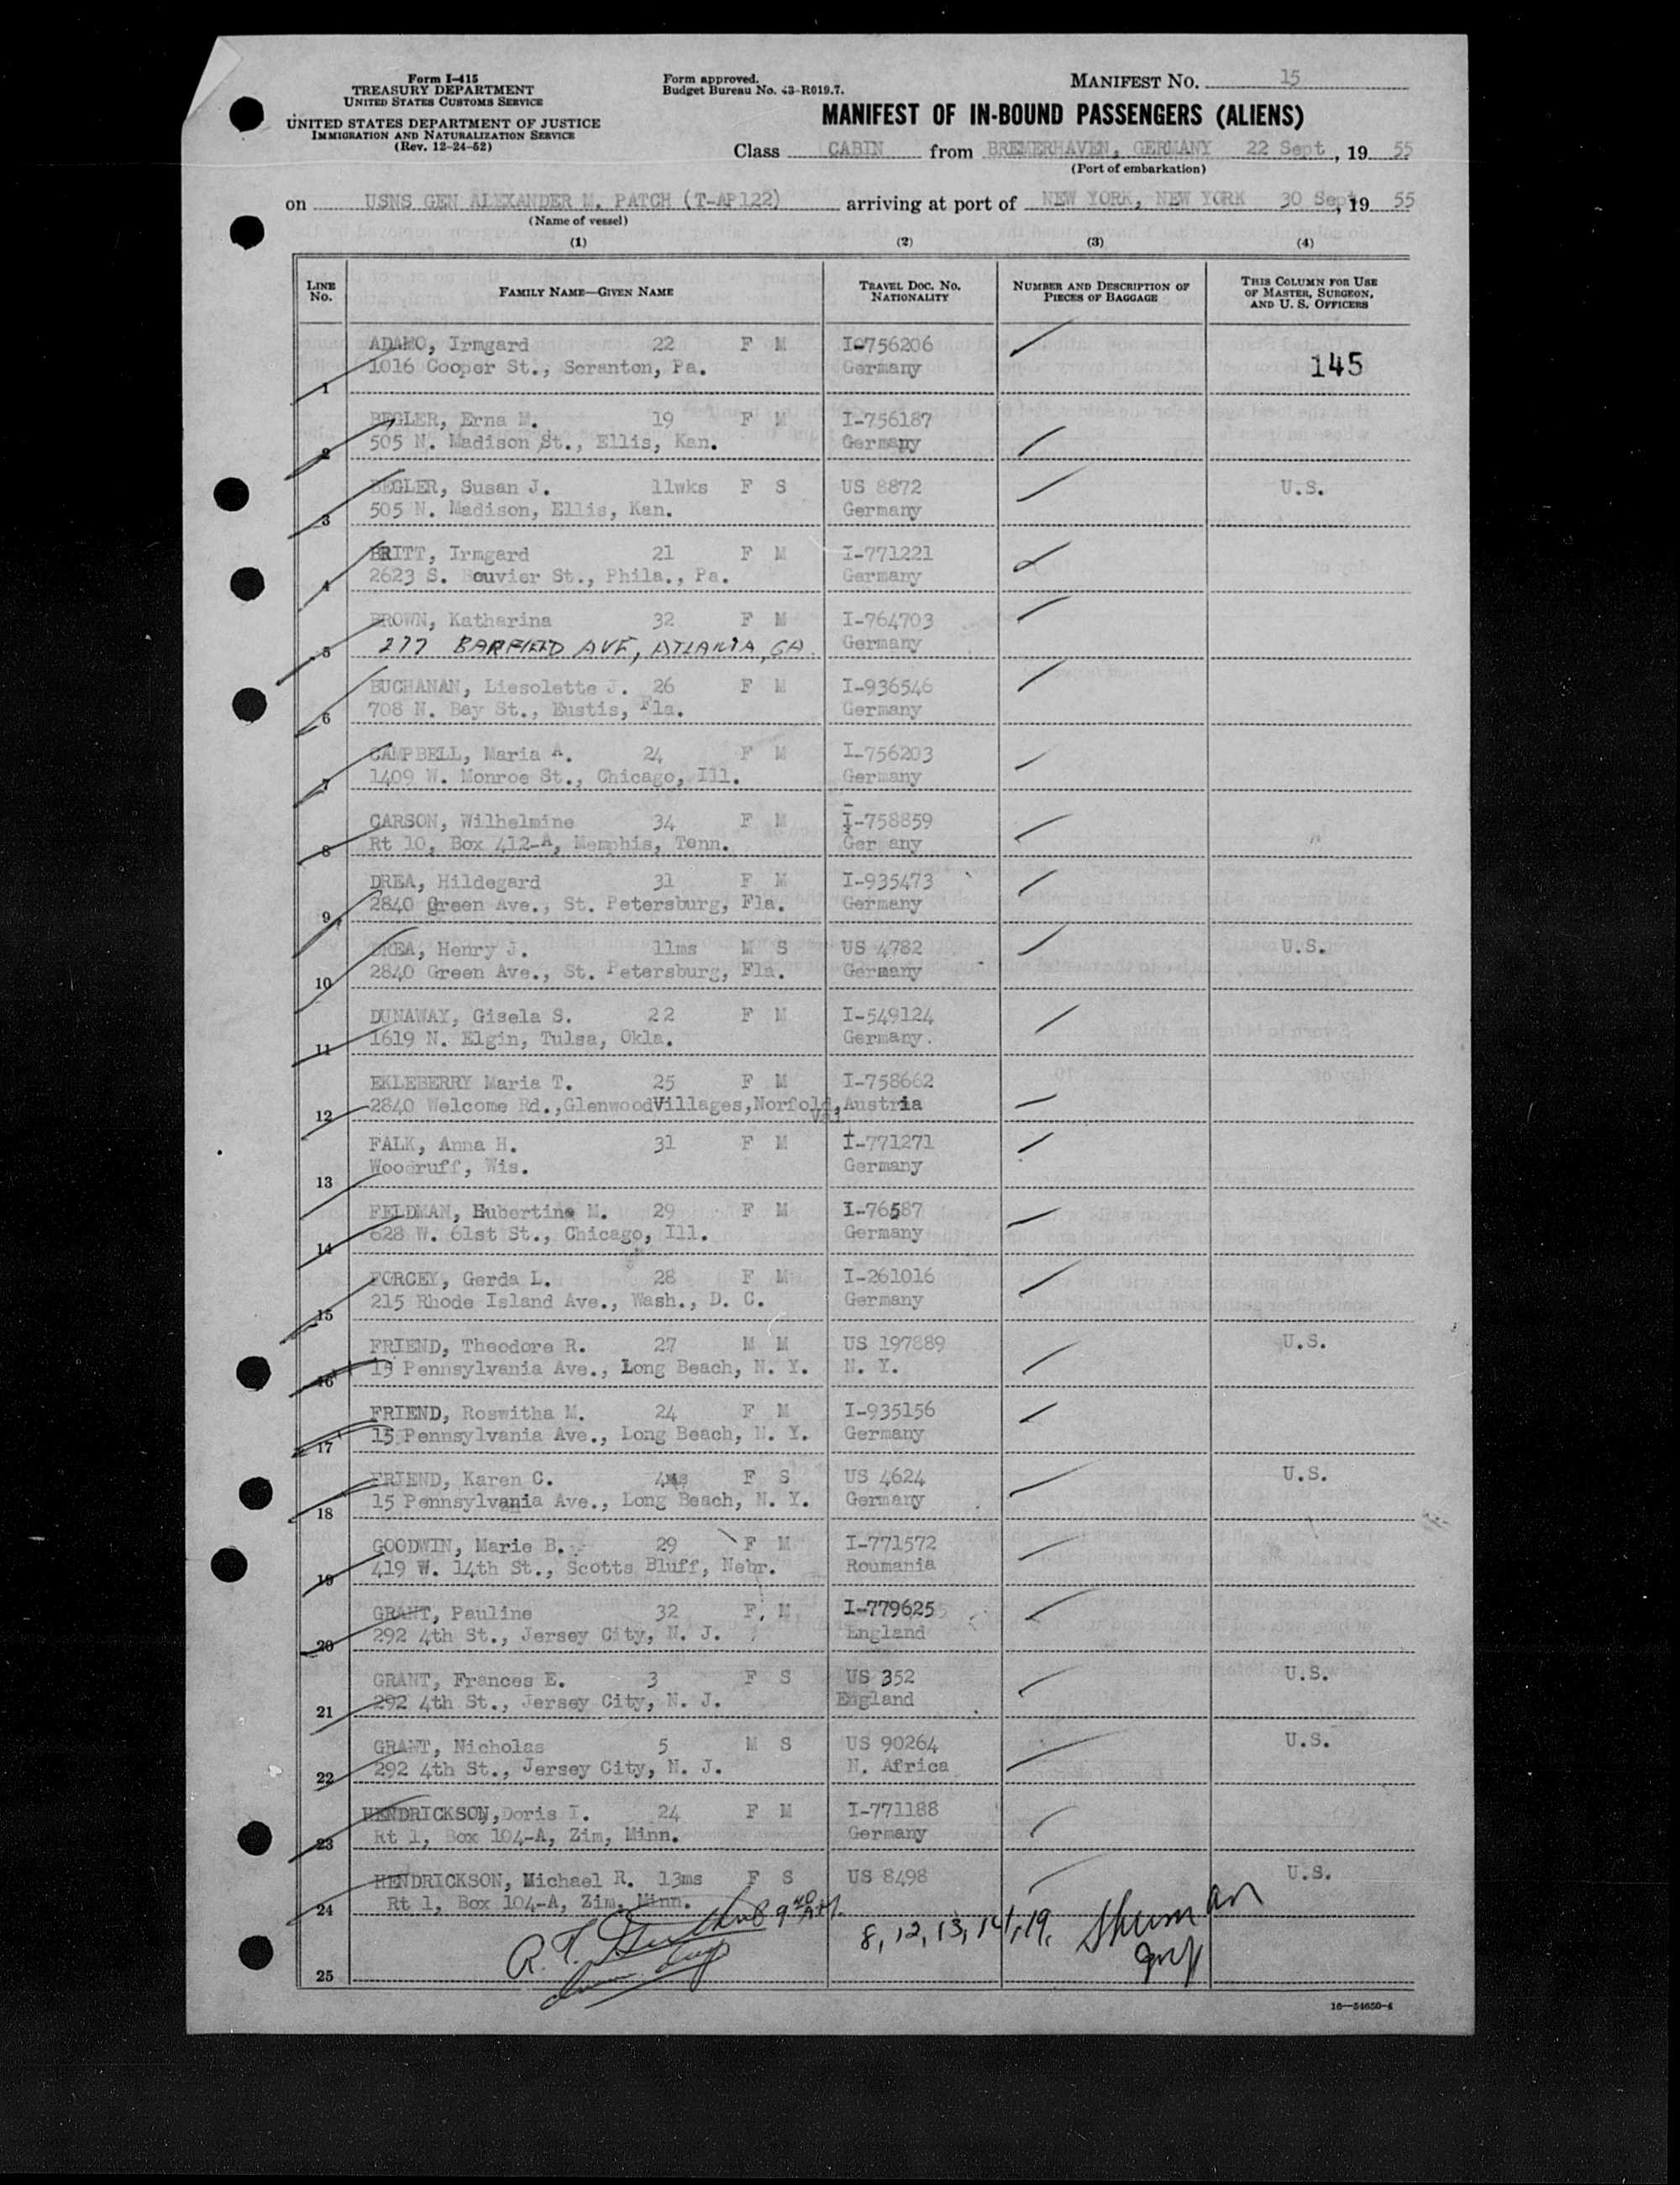 Form I-415
TREASURY DEPARTMENT
UNITED STATES CUSTOMS SERVICE
UNITED STATES DEPARTMENT OF JUSTICE
IMMIGRATION AND NATURALIZATION SERVICE
(Rev. 12-24-52)
Form approved.
Budget Bureau No. 43-R019.7.
MANIFEST NO. 15
MANIFEST OF IN-BOUND PASSENGERS (ALIENS)
Class CABIN from BREMERHAVEN, GERMANY 22 Sept, 19 55
(Port of embarkation)
on USNS GEN ALEXANDER M. PATCH (T-AP122) arriving at port of NEW YORK, NEW YORK 30 Sept, 19 55
(Name of vessel)
(1) (2) (3) (4)
LINE NO. FAMILY NAME—GIVEN NAME TRAVEL DOC. NO. NATIONALITY NUMBER AND DESCRIPTION OF PIECES OF BAGGAGE THIS COLUMN FOR USE OF MASTER, SURGEON, AND U. S. OFFICERS
ADAMO, Irmgard 22 F M I-756206
1 1016 Cooper St., Scranton, Pa. Germany 145
BEGLER, Erna M. 19 F M I-756187
2 505 N. Madison St., Ellis, Kan. Germany
BEGLER, Susan J. 11wks F S US 8872 U.S.
3 505 N. Madison, Ellis, Kan. Germany
BRITT, Irmgard 21 F M I-771221
4 2623 S. Bouvier St., Phila., Pa. Germany
BROWN, Katharina 32 F M I-764703
5 277 BARFIELD AVE, ATLANTA, GA. Germany
BUCHANAN, Liesolette J. 26 F M I-936546
6 708 N. Bay St., Eustis, Fla. Germany
CAMPBELL, Maria A. 24 F M I-756203
7 1409 W. Monroe St., Chicago, Ill. Germany
CARSON, Wilhelmine 34 F M I-758859
8 Rt 10, Box 412-A, Memphis, Tenn. Ger any
DREA, Hildegard 31 F M I-935473
9 2840 Green Ave., St. Petersburg, Fla. Germany
DREA, Henry J. 11ms M S US 4782 U.S.
10 2840 Green Ave., St. Petersburg, Fla. Germany
DUNAWAY, Gisela S. 22 F M I-549124
11 1619 N. Elgin, Tulsa, Okla. Germany.
EKLEBERRY Maria T. 25 F M I-758662
12 2840 Welcome Rd.,GlenwoodVillages,Norfolk, Va. Austria
FALK, Anna H. 31 F M I-771271
13 Woodruff, Wis. Germany
FELDMAN, Hubertina M. 29 F M I-76587
14 628 W. 61st St., Chicago, Ill. Germany
FORCEY, Gerda L. 28 F M I-261016
15 215 Rhode Island Ave., Wash., D. C. Germany
FRIEND, Theodore R. 27 M M US 197889 U.S.
16 15 Pennsylvania Ave., Long Beach, N. Y. N. Y.
FRIEND, Roswitha M. 24 F M I-935156
17 15 Pennsylvania Ave., Long Beach, N. Y. Germany
FRIEND, Karen C. 4ms F S US 4624 U.S.
18 15 Pennsylvania Ave., Long Beach, N. Y. Germany
GOODWIN, Marie B. 29 F M I-771572
19 419 W. 14th St., Scotts Bluff, Nebr. Roumania
GRANT, Pauline 32 F M I-779625
20 292 4th St., Jersey City, N. J. England
GRANT, Frances E. 3 F S US 352 U.S.
21 292 4th St., Jersey City, N. J. England
GRANT, Nicholas 5 M S US 90264 U.S.
22 292 4th St., Jersey City, N. J. N. Africa
HENDRICKSON, Doris I. 24 F M I-771188
23 Rt 1, Box 104-A, Zim, Minn. Germany
HENDRICKSON, Michael R. 13ms F S US 8498 U.S.
24 Rt 1, Box 104-A, Zim, Minn.
8, 12, 13, 14, 19. Shuman
25
16—54650-4